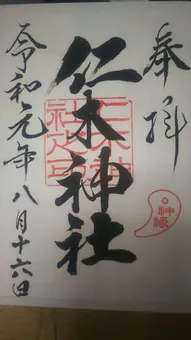 奉拝
仁木神社
仁木神社之印
神縁
令和元年八月十六日